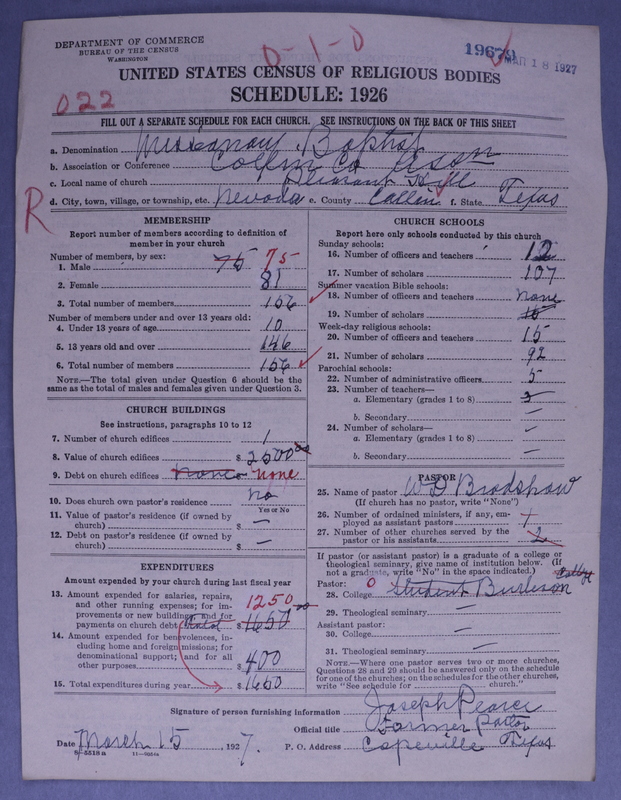 DEPARTMENT OF COMMERCE
BUREAU OF THE CENSUS
WASHINGTON
0-1-0
19679
MAR 18 1927
UNITED STATES CENSUS OF RELIGIOUS BODIES
SCHEDULE: 1926
022
FILL OUT A SEPARATE SCHEDULE FOR EACH CHURCH. SEE INSTRUCTIONS ON THE BACK OF THIS SHEET
a. Denomination Missionary Baptist
b. Association or Conference Collin Co
c. Local name of church Pleasant Hill
d. City, town, village, or township, etc. Nevada e. County Collin f. State Texas
R
MEMBERSHIP
Report number of members according to definition of
member in your church
Number of members, by sex:
1. Male 75 75
2. Female 81
3. Total number of members 156
Number of members under and over 13 years old:
4. Under 13 years of age 10
5. 13 years old and over 146
6. Total number of members 156
NOTE.—The total given under Question 6 should be the
same as the total of males and females given under Question 3.
CHURCH BUILDINGS
See instructions, paragraphs 10 to 12
7. Number of church edifices 1
8. Value of church edifices $ 2500 00
9. Debt on church edifices none
10. Does church own pastor's residence no
Yes or No
11. Value of pastor's residence (if owned by
church) $ —
12. Debt on pastor's residence (if owned by
church) $ —
EXPENDITURES
Amount expended by your church during last fiscal year
13. Amount expended for salaries, repairs,
and other running expenses; for im-
provements or new building, and for
payments on church debt 1250 00 $ 1650
14. Amount expended for benevolences, in-
cluding home and foreign missions; for
denominational support; and for all
other purposes $ 400
15. Total expenditures during year $ 1650
CHURCH SCHOOLS
Report here only schools conducted by this church
Sunday schools:
16. Number of officers and teachers 12
17. Number of scholars 107
Summer vacation Bible schools:
18. Number of officers and teachers none
19. Number of scholars
Week-day religious schools:
20. Number of officers and teachers 15
21. Number of scholars 92
Parochial schools:
22. Number of administrative officers 5
23. Number of teachers—
a. Elementary (grades 1 to 8) 3
b. Secondary —
24. Number of scholars—
a. Elementary (grades 1 to 8) —
b. Secondary —
PASTOR
25. Name of pastor W D Bradshaw
(If church has no pastor, write "None")
26. Number of ordained ministers, if any, em-
ployed as assistant pastors 1
27. Number of other churches served by the
pastor or his assistants 2
If pastor (or assistant pastor) is a graduate of a college or
theological seminary, give name of institution below. (If
not a graduate, write "No" in the space indicated.) College
Pastor: 0
28. College Student Burleson
29. Theological seminary —
Assistant pastor:
30. College —
31. Theological seminary —
NOTE.—Where one pastor serves two or more churches,
Questions 28 and 29 should be answered only on the schedule
for one of the churches; on the schedules for the other churches,
write "See schedule for church."
Signature of person furnishing information Joseph Pearce
Official title Former Pastor
Date March 15, 1927. P. O. Address Copeville Texas
8—5518a 11—9564a